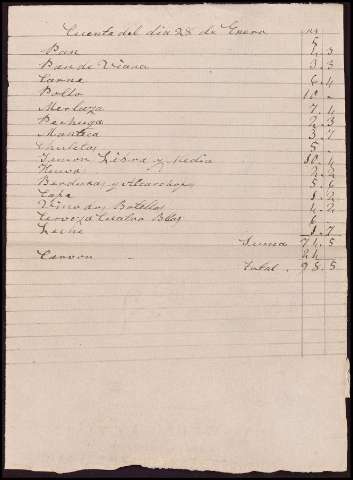 Cuenta del dia 28 de Enero
Pan 1.3
Pan de Viana 3.3
Carne 6.4
Pollo 10.-
Merluza 7.4
Pechuga 2.3
Manteca 3.7
Chuletas 5.-
Jamon Libra y Media 10.4
Huevos 2.2
Berduras y Alcarchofas 5.6
Café 1.2
Vino dos Botellas 4.2
Cerveza Cuatro Bllas 6.-
Leche 1.7
Suma 71.5
Carvon 24
Total. 95.5